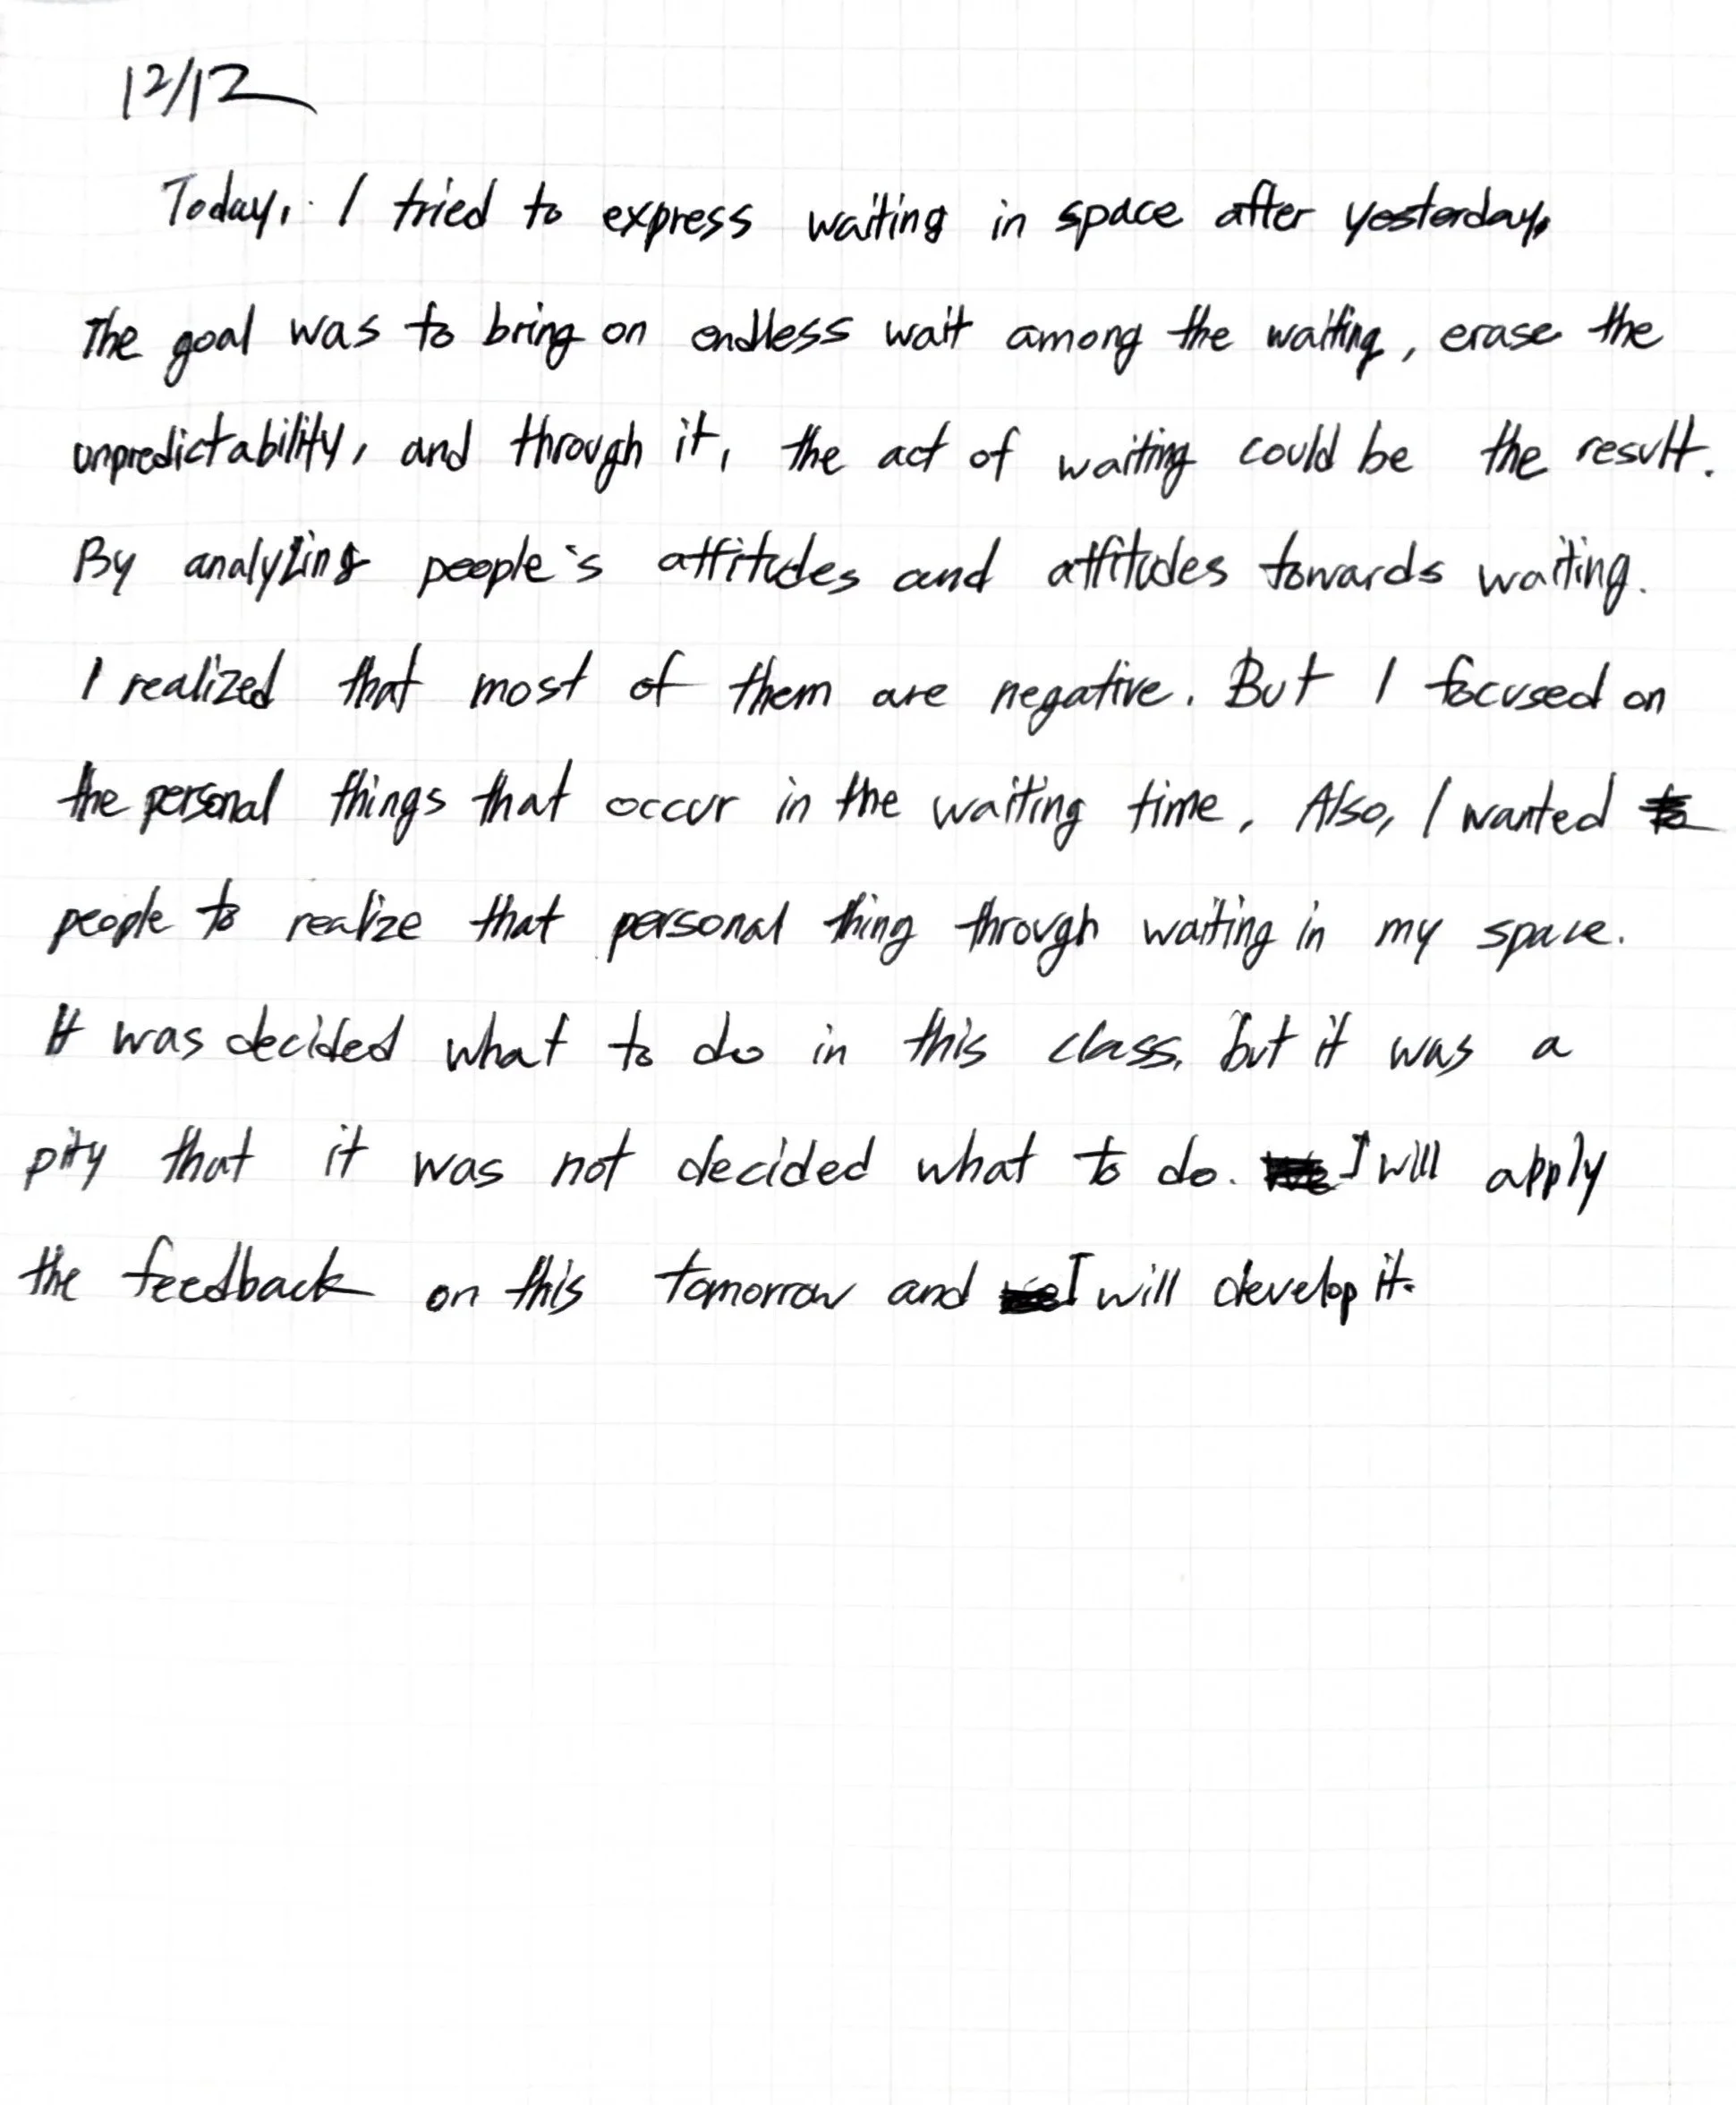 12/12
Today, I tried to express waiting in space after yesterday,
The goal was to bring on endless wait among the waiting, erase the
unpredictability, and through it, the act of waiting could be the result.
By analyzing people's attitudes and attitudes towards waiting.
I realized that most of them are negative. But I focused on
the personal things that occur in the waiting time. Also, I wanted
people to realize that personal thing through waiting in my space.
It was decided what to do in this class, but it was a
pity that it was not decided what to do. I will apply
the feedback on this tomorrow and I will develop it.